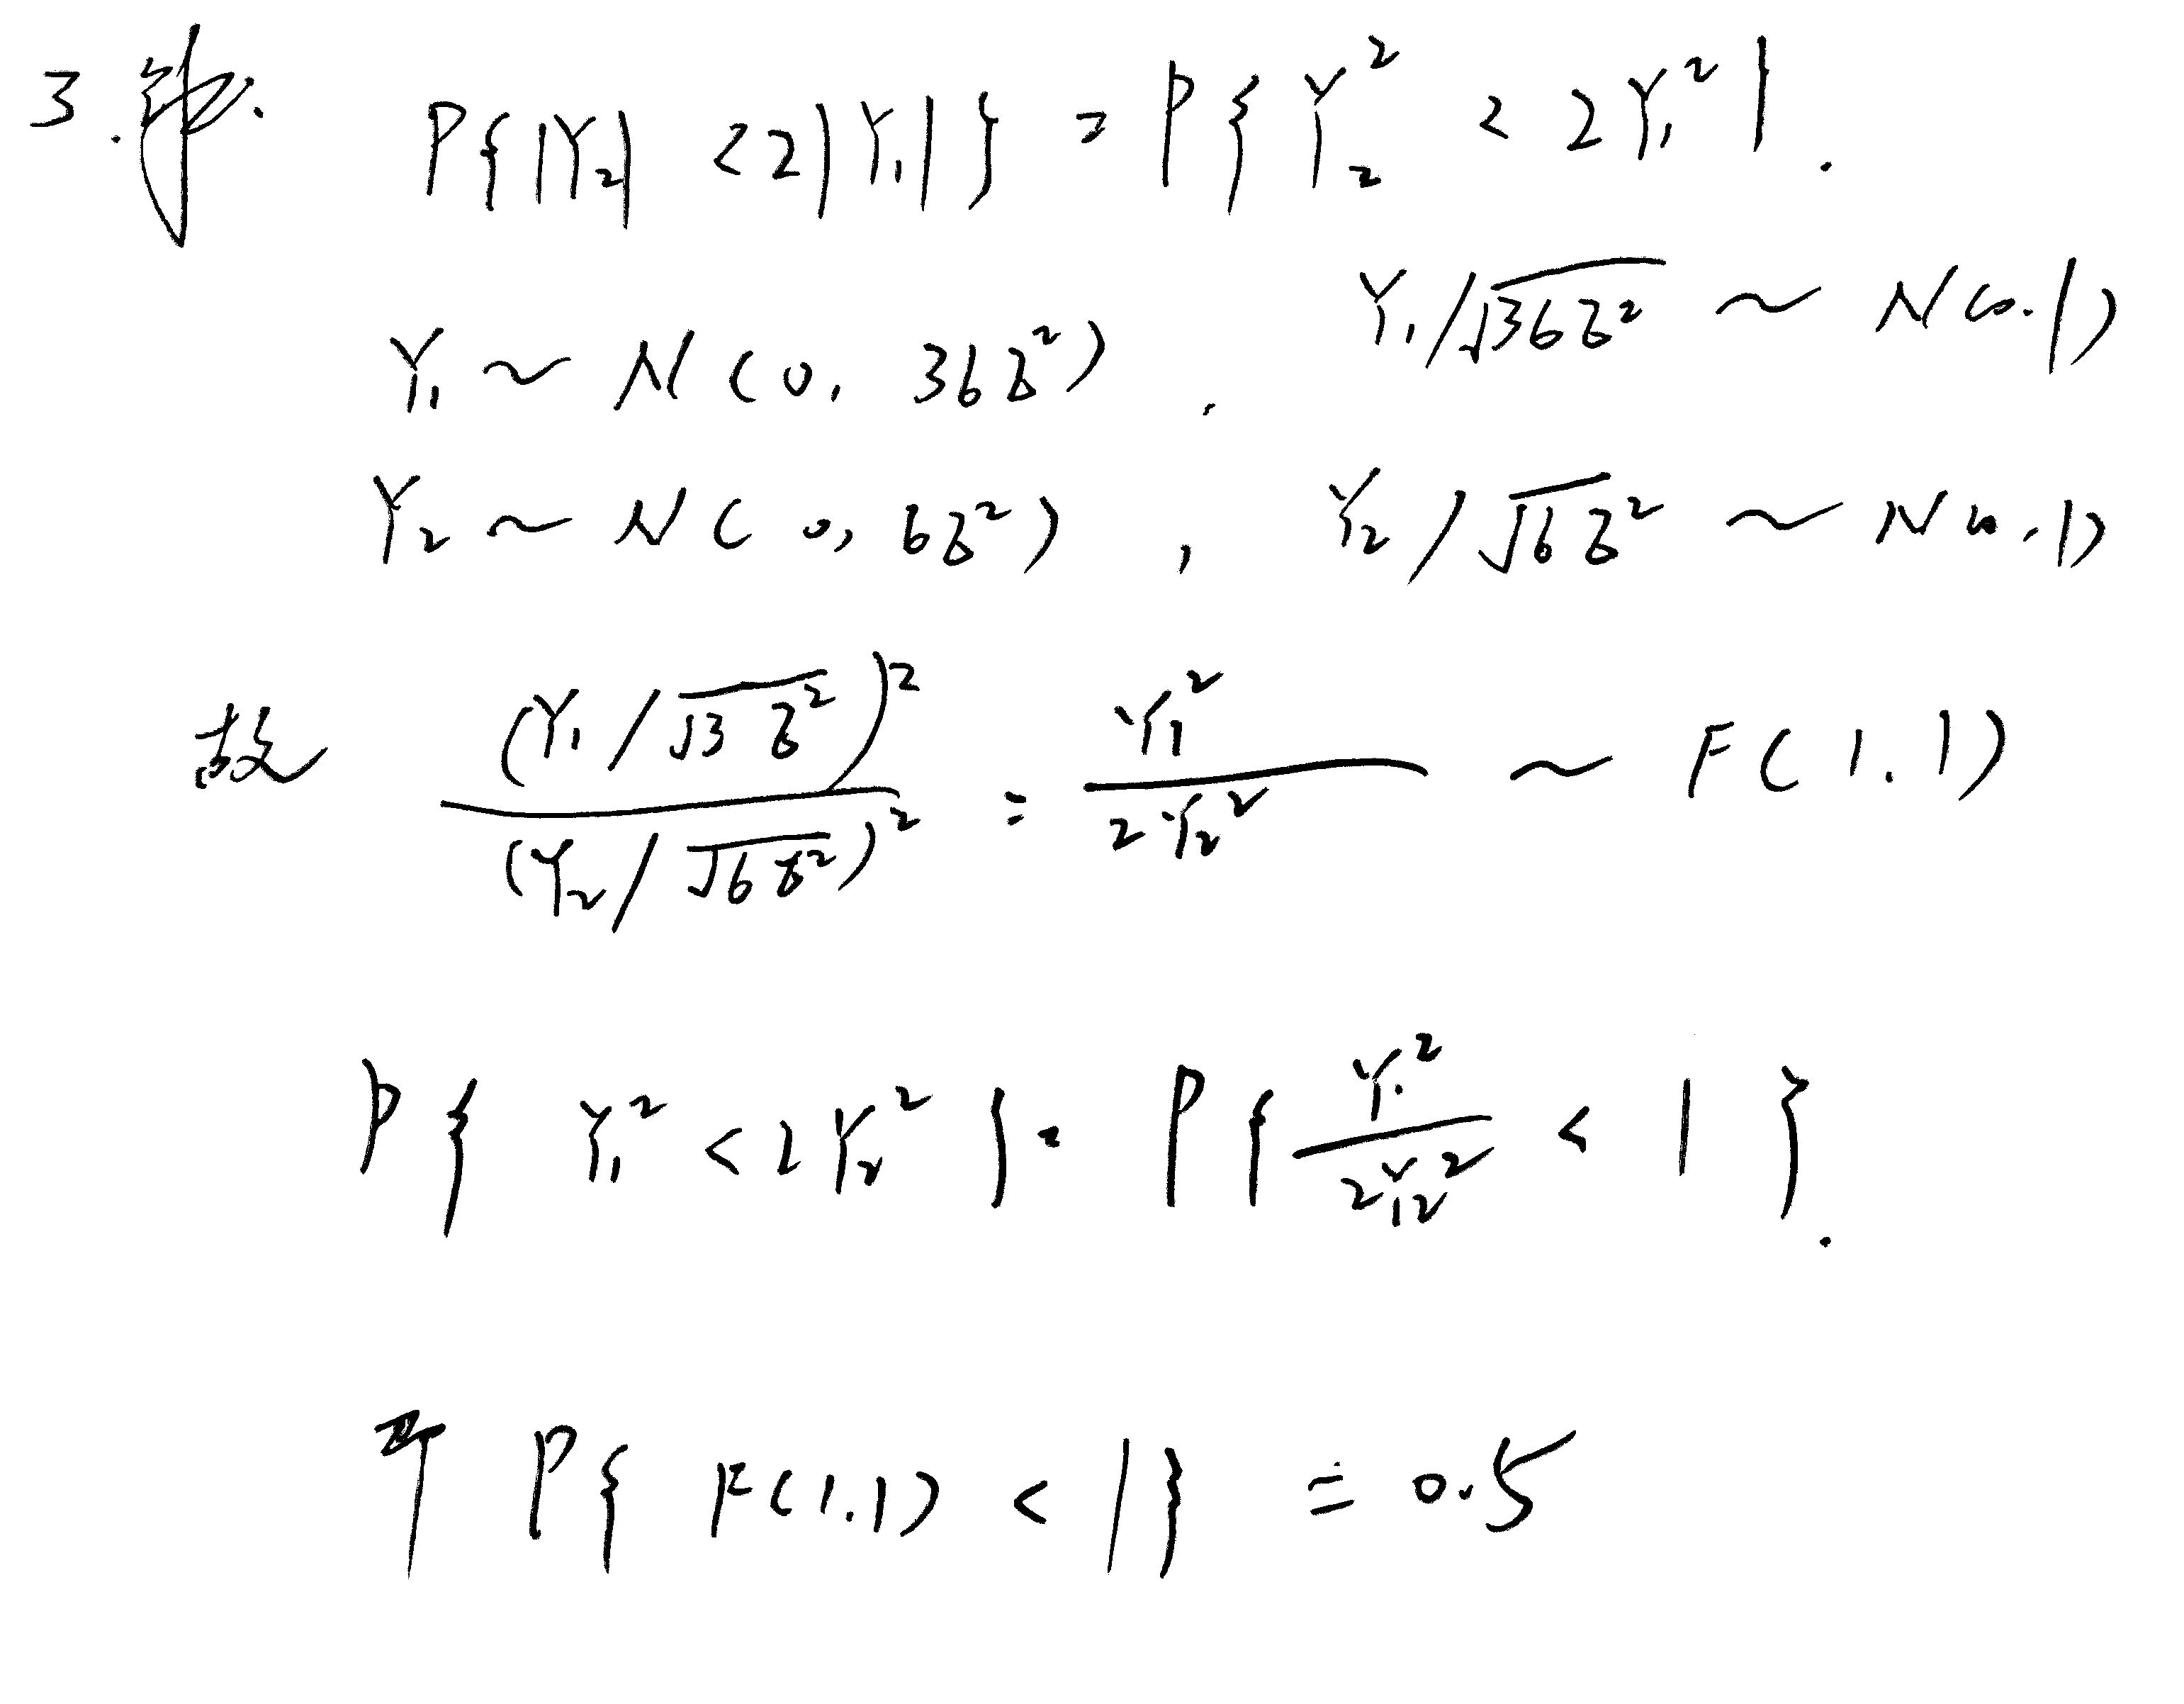 3. 解. P{|Y₂| < 2|Y₁|} = P{Y₂² < 2Y₁²}.
Y₁ ~ N(0, 36σ²), Y₁/√36σ² ~ N(0.1)
Y₂ ~ N(0, 6σ²), Y₂/√6σ² ~ N(0.1)
故 (Y₁/√3σ²)² / (Y₂/√6σ²)² = Y₁² / 2Y₂² ~ F(1.1)
P{Y₁² < 2Y₂²} = P{Y₁² / 2Y₂² < 1}.
P{F(1.1) < 1} = 0.5